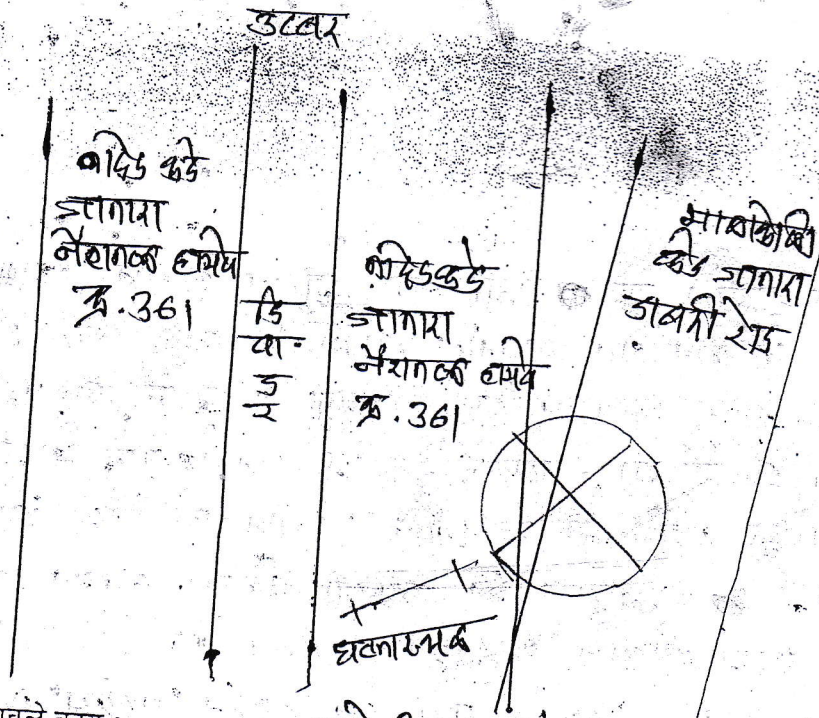 उत्तर
नांदेड कडे
जाणारा
नॅशनल हायवे
क्र. 361
डि
वा
ड
र
नांदेड कडे
जाणारा
नॅशनल हायवे
क्र. 361
कडे जाणारा
डाबरी रोड
घटनास्थळ